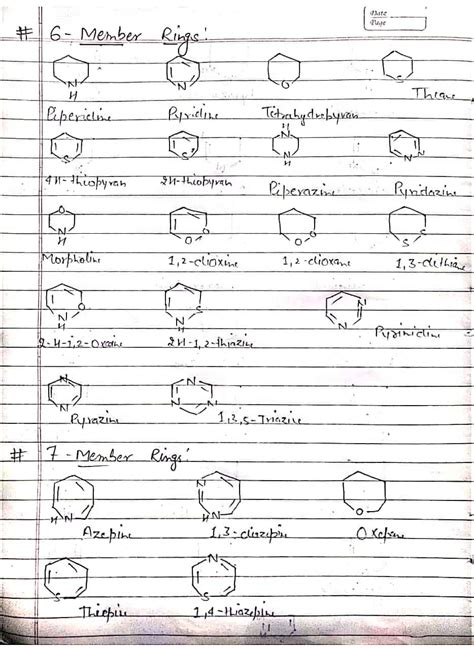 Date
Page
# 6 - Member Rings:
N H N O S
Piperidine Pyridine Tetrahydropyran Thiane
S S H N N H N N
4H-thiopyran 2H-thiopyran Piperazine Pyridazine
O N H O O O O S S
Morpholine 1,2-dioxine 1,2-dioxane 1,3-dithiane
O N H S N H N N
2-H-1,2-Oxazine 2H-1,2-thiazine Pyrimidine
N N N N N
Pyrazine 1,3,5-Triazine
# 7 - Member Rings:
HN N HN O
Azepine 1,3-diazepine Oxepane
S N S
Thiepine 1,4-thiazepine